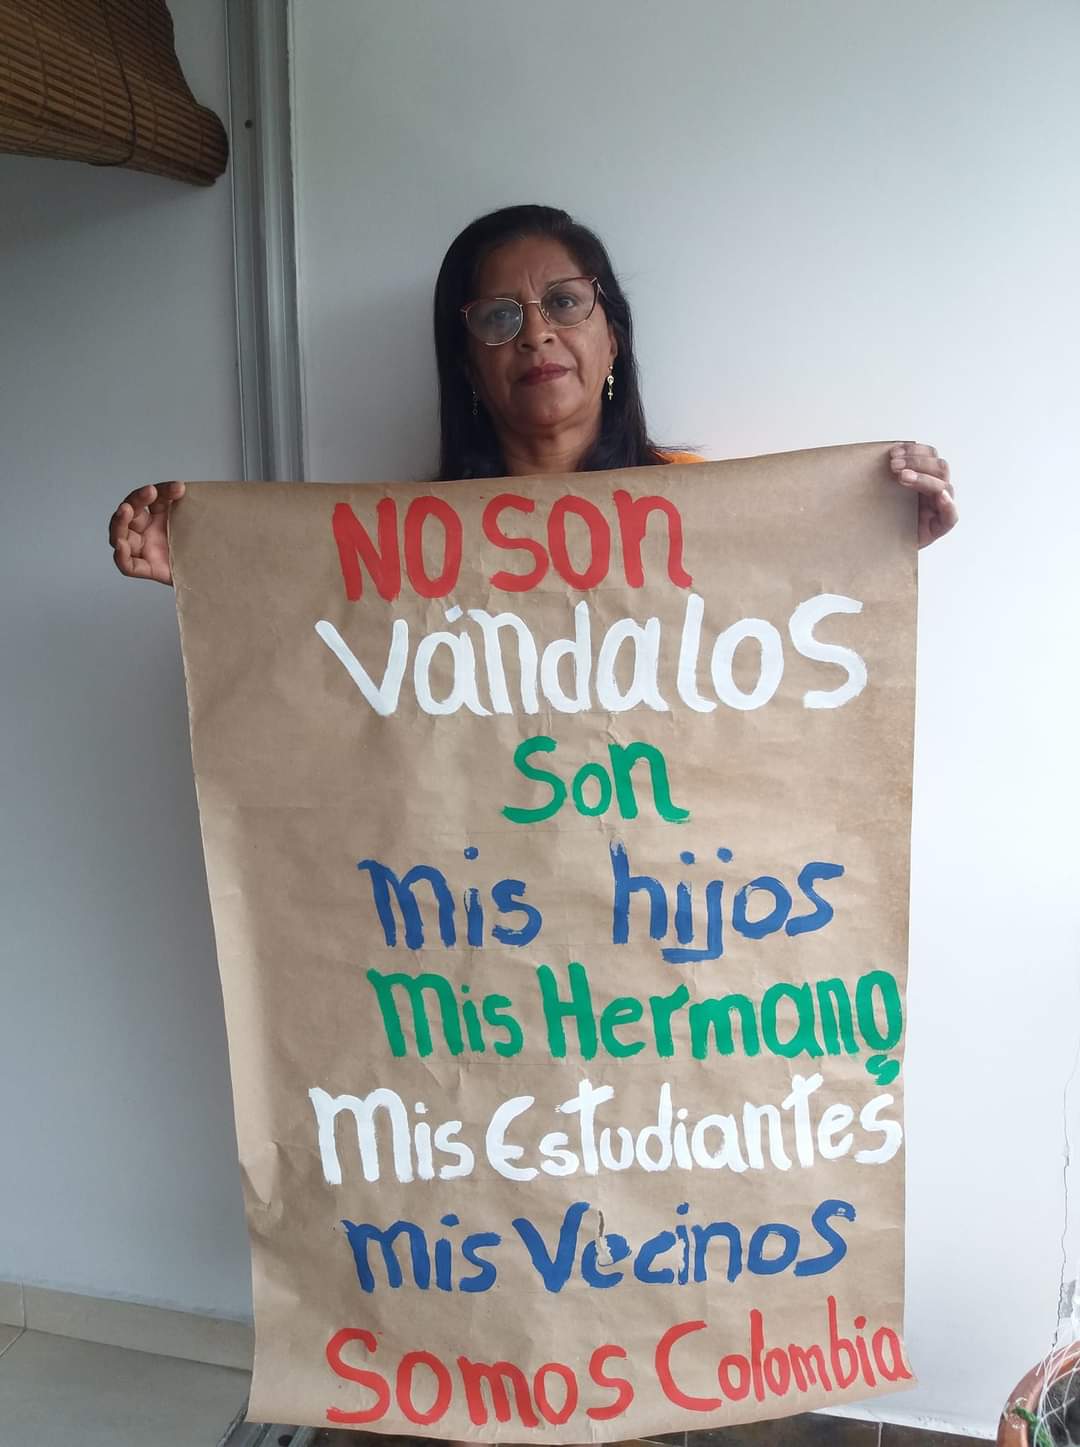 NO SON
Vándalos
Son
mis hijos
Mis Hermanos
Mis Estudiantes
mis Vecinos
Somos Colombia